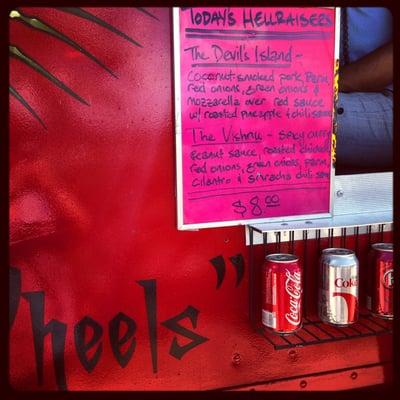 Today's Hellraisers
The Devil's Island -
Coconut-smoked pork, Parm,
red onions, green onions &
mozzarella over red sauce
w/ roasted pineapple & chili sauce
The Vishnu - spicy curry
peanut sauce, roasted chicken,
red onions, green onions, parm,
cilantro & sriracha chili sauce
$8.00
heels"
Coca-Cola
Coke